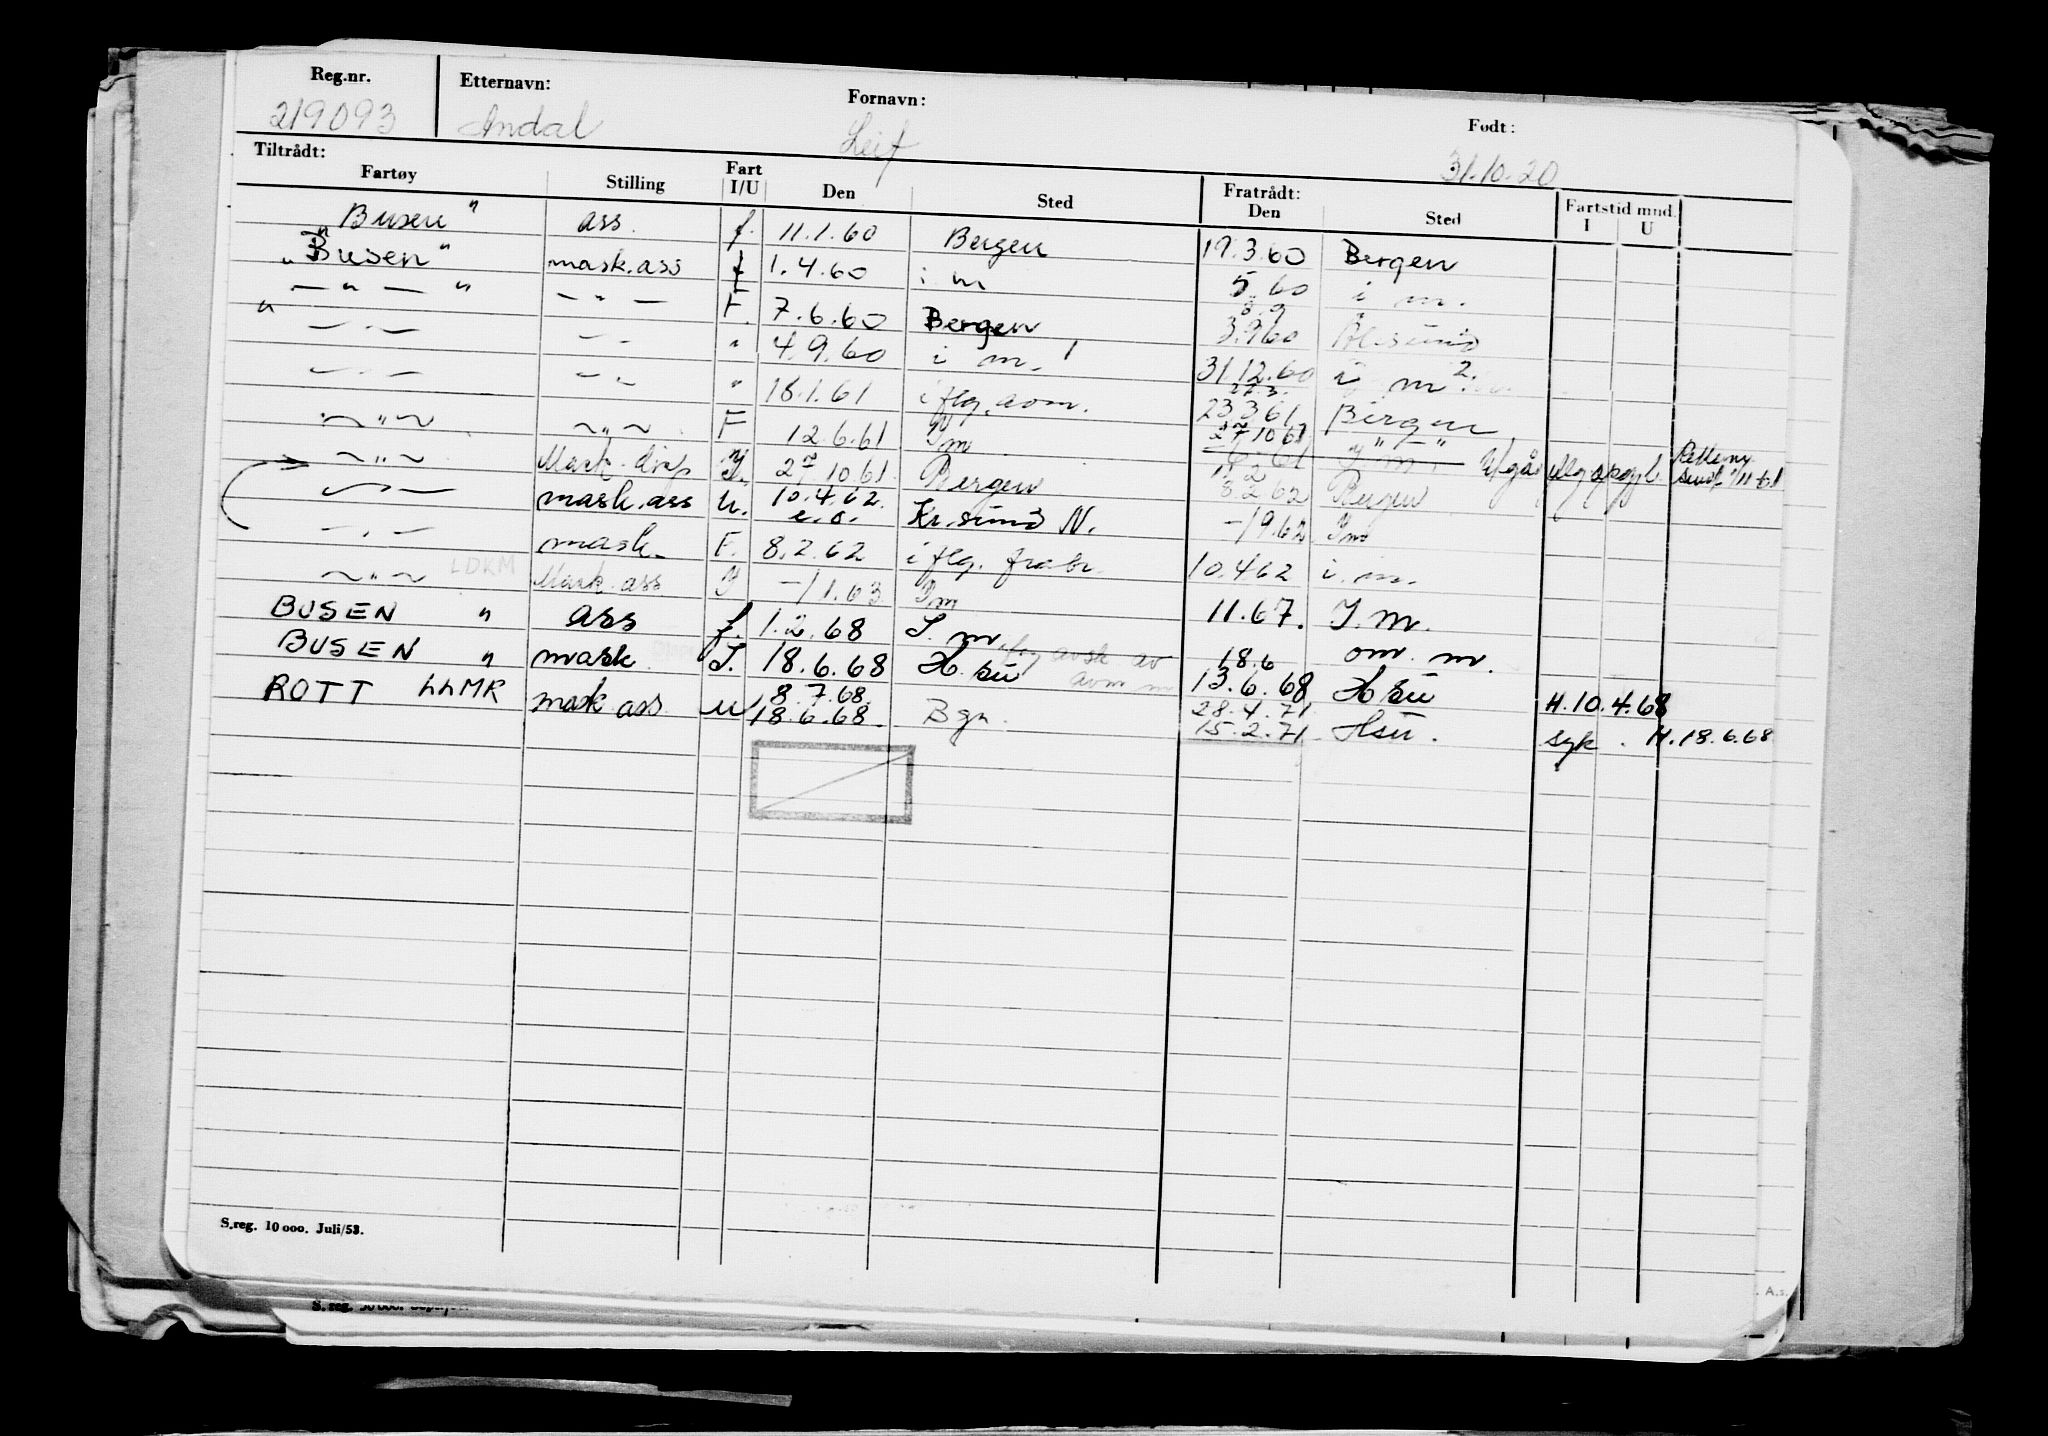 Reg.nr. Etternavn: Fornavn: Født:
219093 Andal Leif 31.10.20
Tiltrådt: Fratrådt:
Fartøy Stilling Fart I/U Den Sted Den Sted Fartstid mnd. I U
"Busen" ass. f. 11.1.60 Bergen 17.3.60 Bergen
"Busen" mask.ass f 1.4.60 i m 5.60 i m.
— " — " — " — F. 7.6.60 Bergen 3.9.60 Ål.sund
" — " — — " " 4.9.60 i m. 31.12.60 i m
— " — — " " 18.1.61 i flg. avm. 23.3.61 Bergen
— " — — " — F 12.6.61 I m 27.10.61
— " — Mask. 27.10.61 Bergen 3.2.62 Bergen
— " — mask.ass u. 10.4.62 Kr.sund N. -/9.62 I m
— " — mask. F. 8.2.62 i flg. 10.4.62 i.m.
— " — LDKM Mask.ass -/1.63 I m 11.67. I.M.
BUSEN " ass f. 1.2.68 I. m. 18.6 om. m.
BUSEN " mask. I. 18.6.68 H.su 13.6.68 H su H.10.4.68
ROTT LLMR mask.ass u 8.7.68. 18.6.68. Bgn. 28.4.71 15.2.71 Hsu. syk. H.18.6.68
S.reg. 10 000. Juli/53.